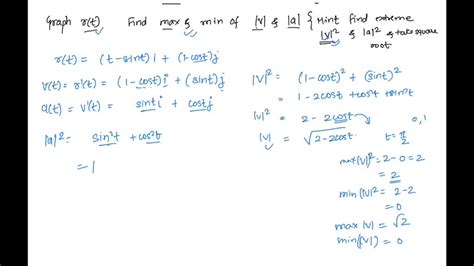 Graph r(t) Find max & min of |v| & |a| { Hint find extreme
|v|² & |a|² & take square
root
r(t) = (t-sint)i + (1-cost)j
v(t) = r'(t) = (1-cost)i + (sint)j
a(t) = v'(t) = sint i + cost j
|a|² = sin²t + cos²t
= 1
|v|² = (1-cost)² + (sint)²
= 1-2cost + cos²t + sin²t
|v|² = 2 - 2cost
|v| = √2-2cost
0,1
t = π/2
max|v|² = 2-0 = 2
2
min|v|² = 2-2
= 0
max |v| = √2
min(|v|) = 0